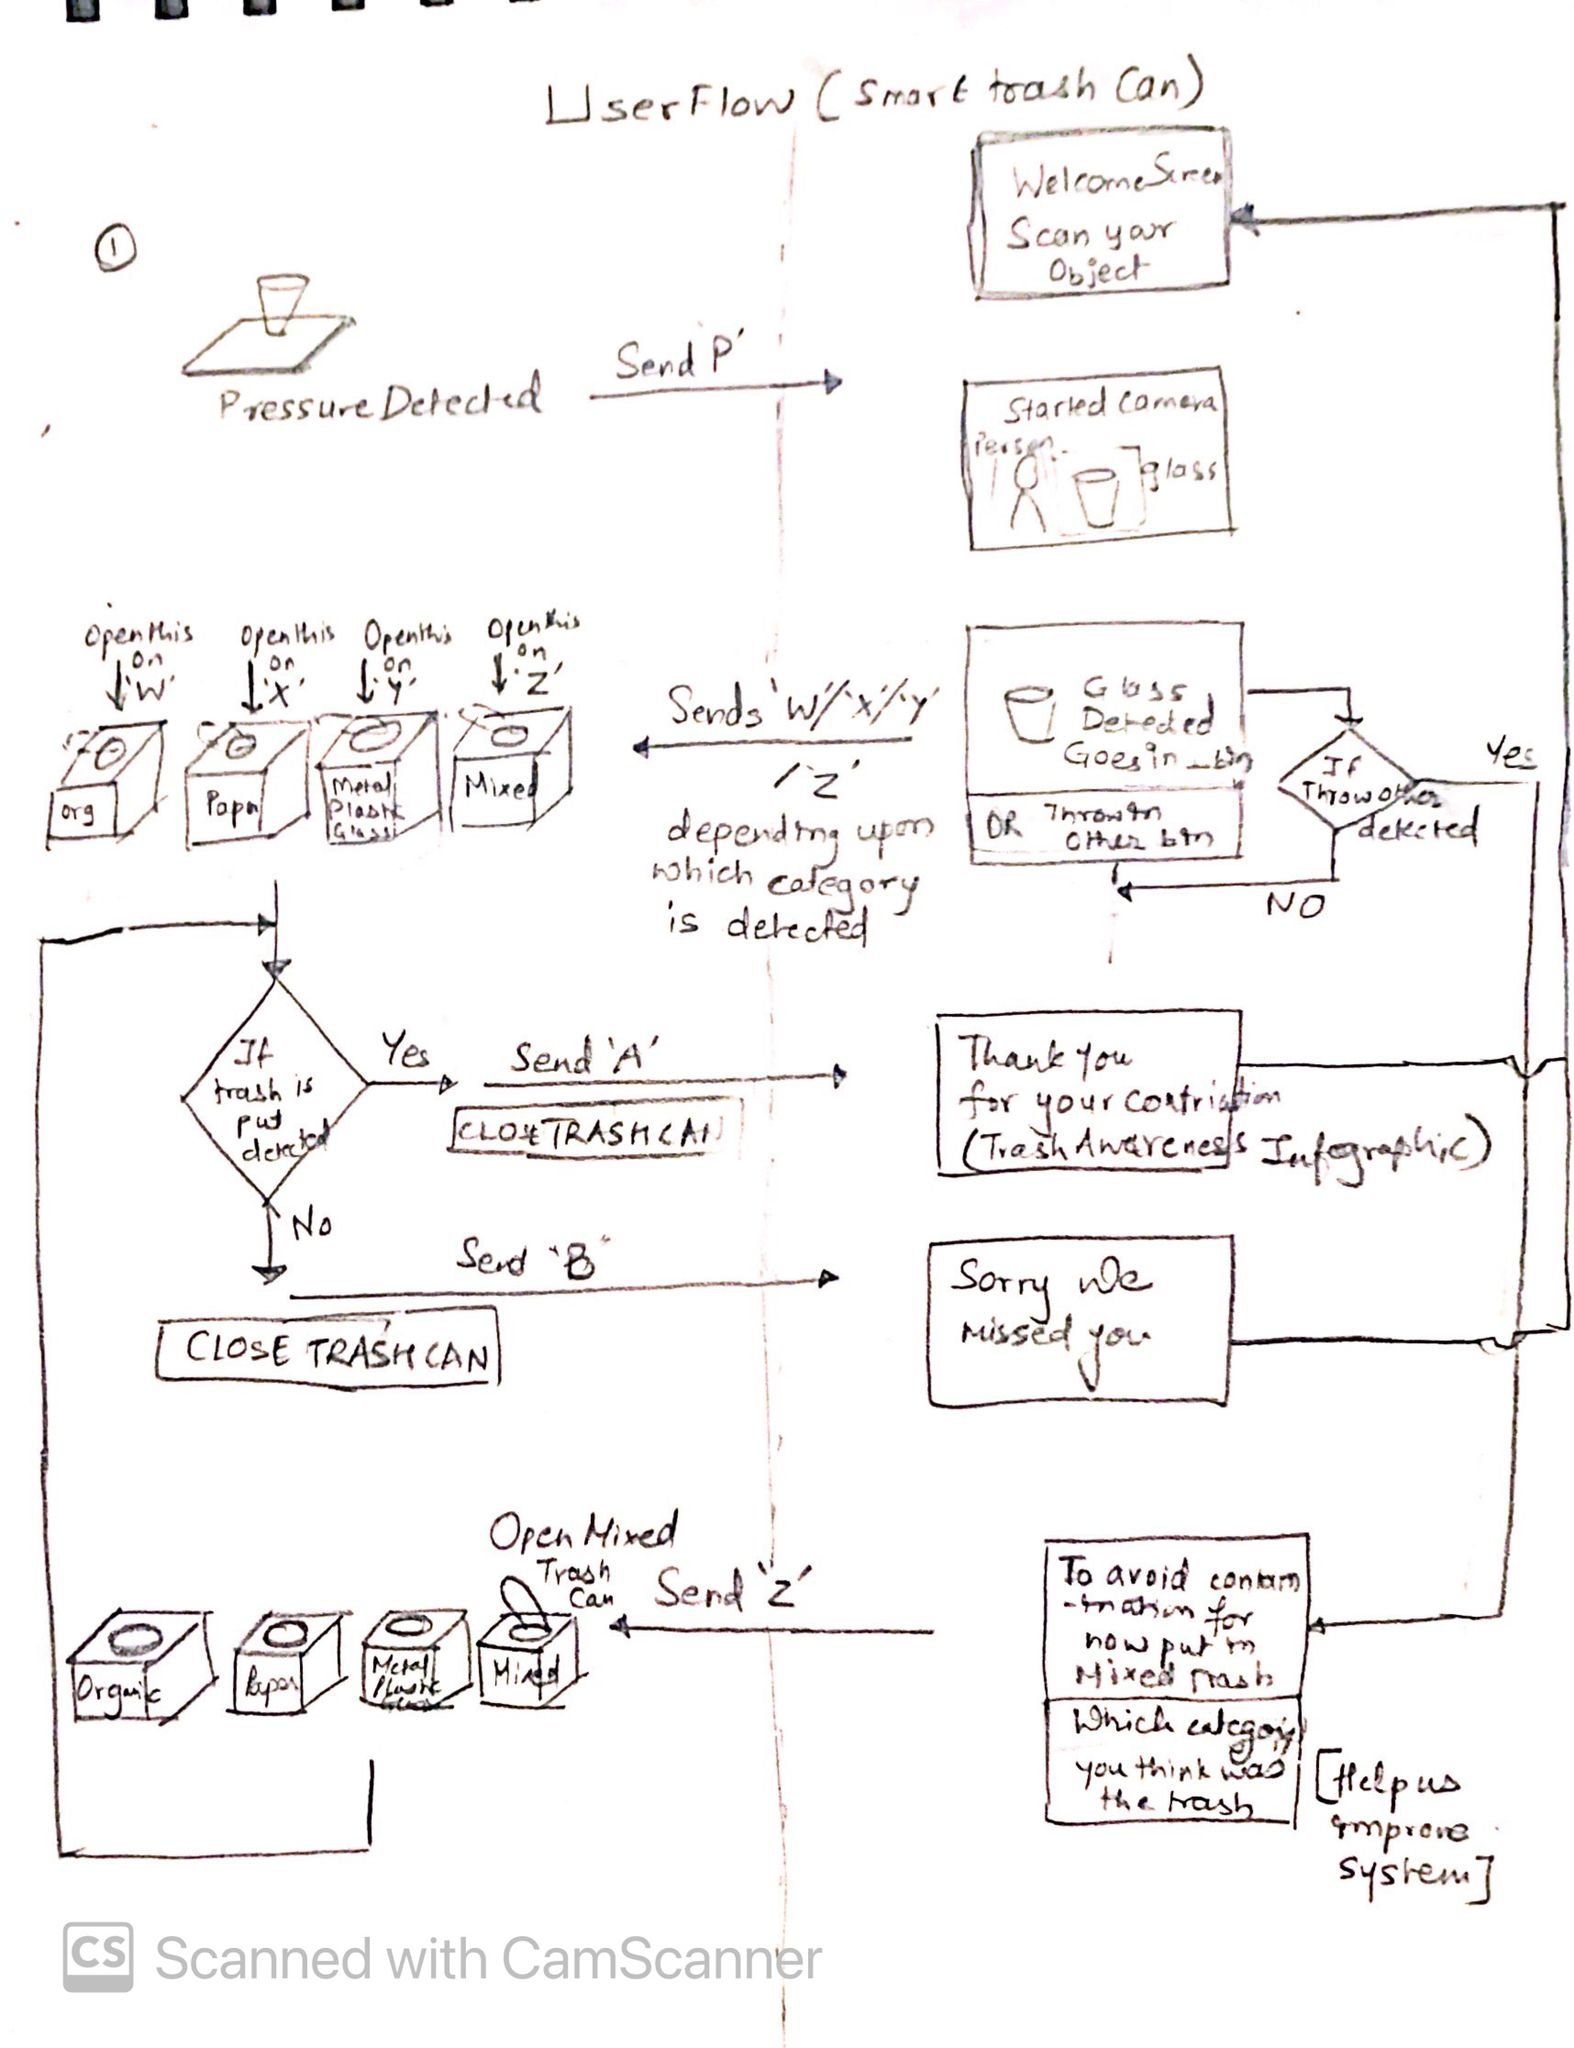 UserFlow (Smart trash Can)
Welcome Screen
Scan your
Object
1
Send P'
Pressure Detected
Started camera
Person
glass
Open this
on
'W'
Open this
on
'X'
Open this
on
'Y'
Open this
on
'Z'
org
Paper
Metal
Plastic
Glass
Mixed
Sends 'W'/'X'/'Y'
/'Z'
depending upon
which category
is detected
Glass
Detected
Goes in _ bin
OR Throw in
Other bin
If
Throw other
detected
Yes
NO
If
trash is
put
detected
Yes
Send 'A'
CLOSE TRASH CAN
Thank you
for your contriation
(Trash Awareness Infographic)
No
Send "B"
CLOSE TRASH CAN
Sorry we
missed you
Open Mixed
Trash
Can
Send 'Z'
Organic
Paper
Metal
Plastic
Mixed
To avoid contam
-ination for
now put in
Mixed trash
Which category
you think was
the trash
[Help us
improve
system]
CS Scanned with CamScanner